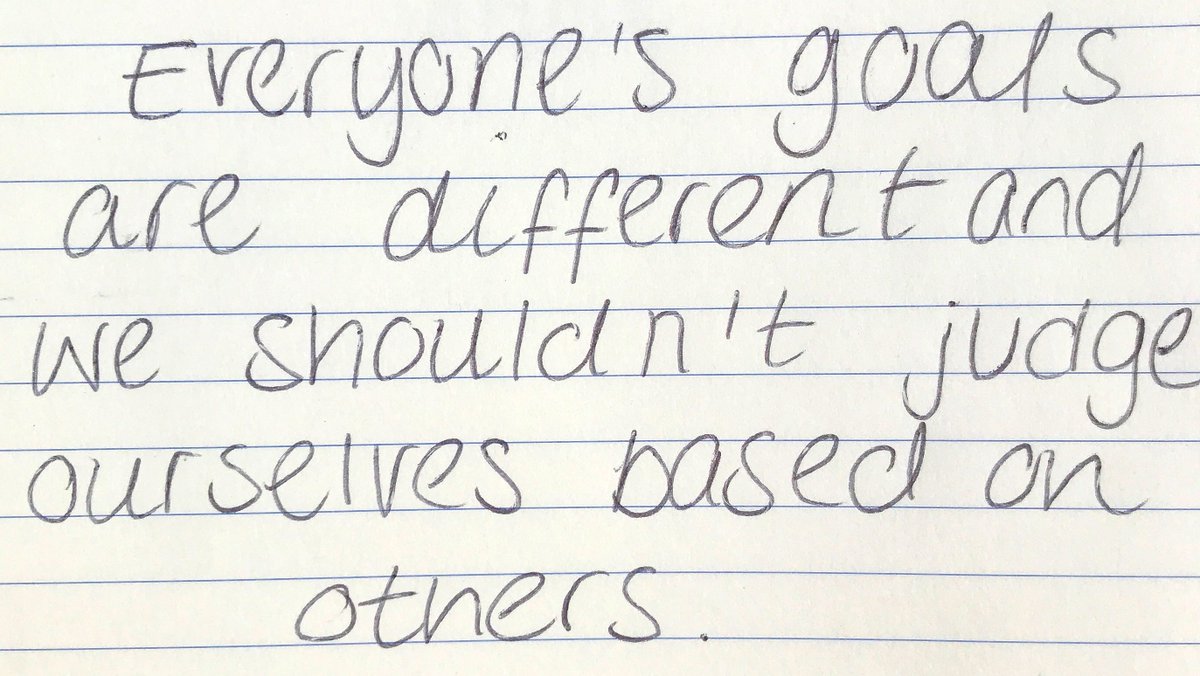 Everyone's goals
are different and
we shouldn't judge
ourselves based on
others.